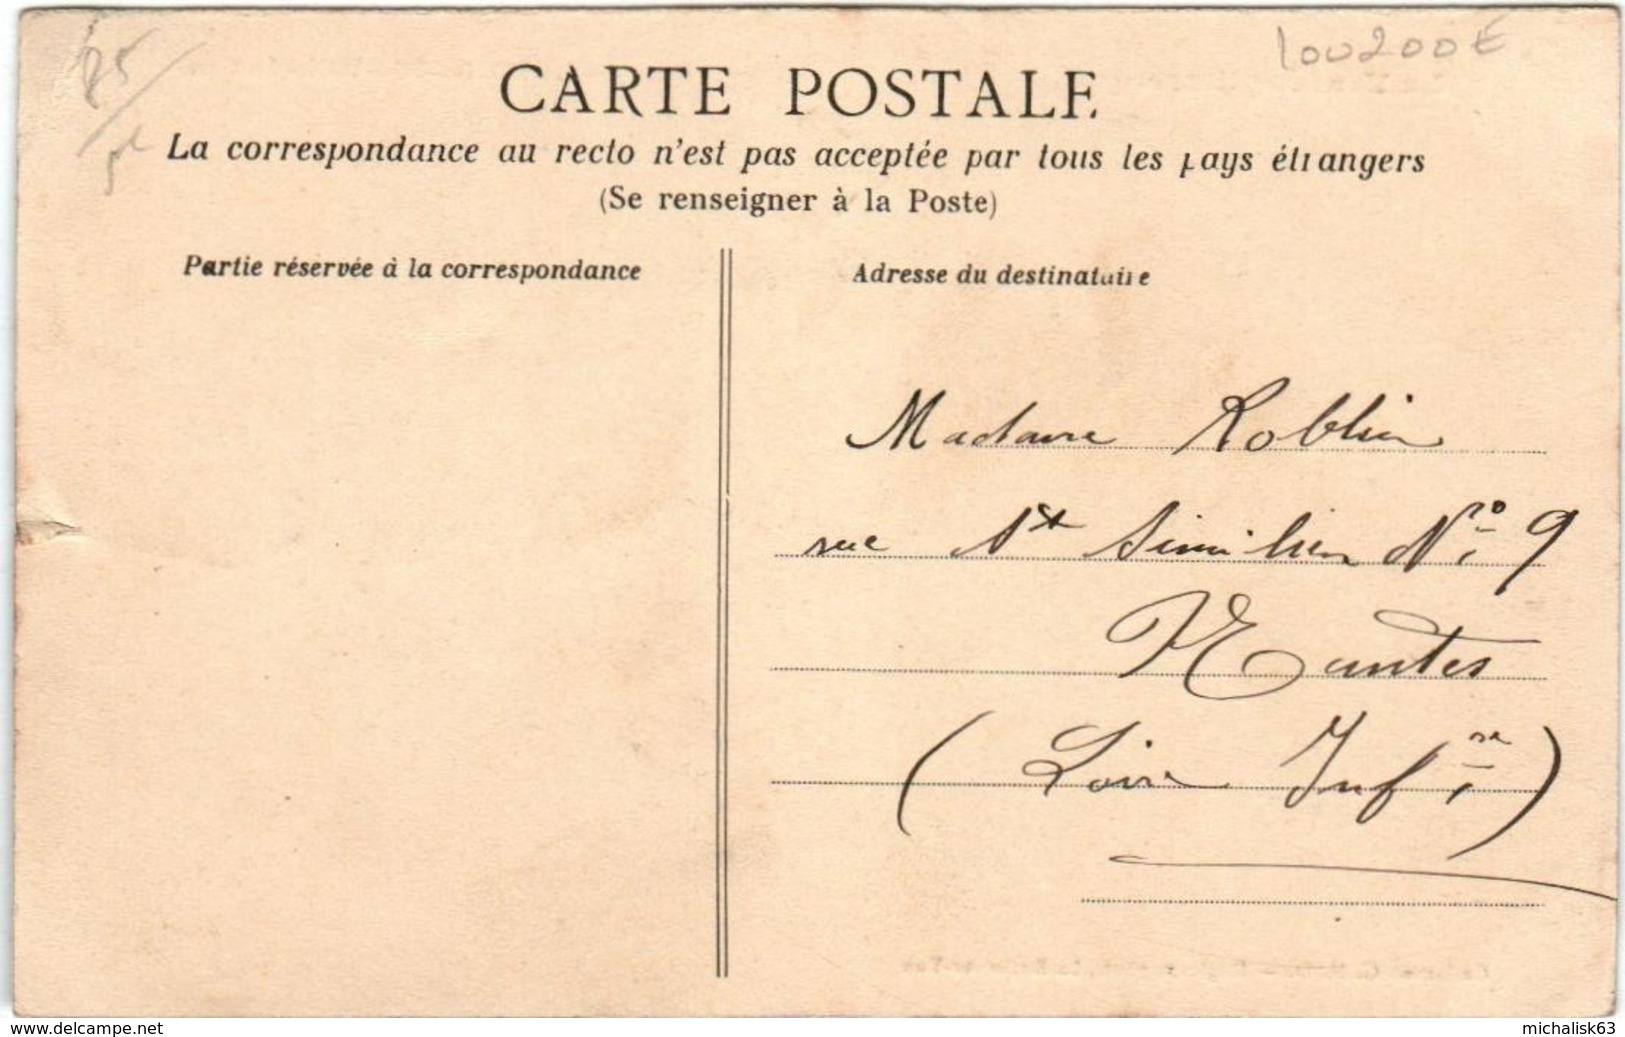 85
100 200 E
CARTE POSTALE
La correspondance au recto n'est pas acceptée par tous les pays étrangers
(Se renseigner à la Poste)
Partie réservée à la correspondance
Adresse du destinataire
Madame Roblin
rue St Similien No 9
Nantes
(Loire Infre)
www.delcampe.net
michalisk63